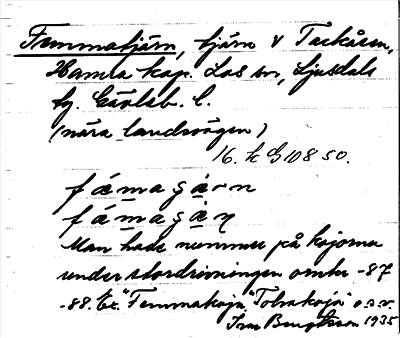 Femmatjärn, tjärn V Tackåsen,
Hamra kap. Los sn, Ljusdals
tg. Gävleb. l.
(nära landsvägen)
16. h G 108 SO.
fǽmagǡrn
fǽmagǡṇ
Man hade nummer på kojorna
under stordrivningen omkr -87
-88. Ex. "Femmakoja" "Tolvakoja" o.s.v.
Ivar Bengtsson 1935